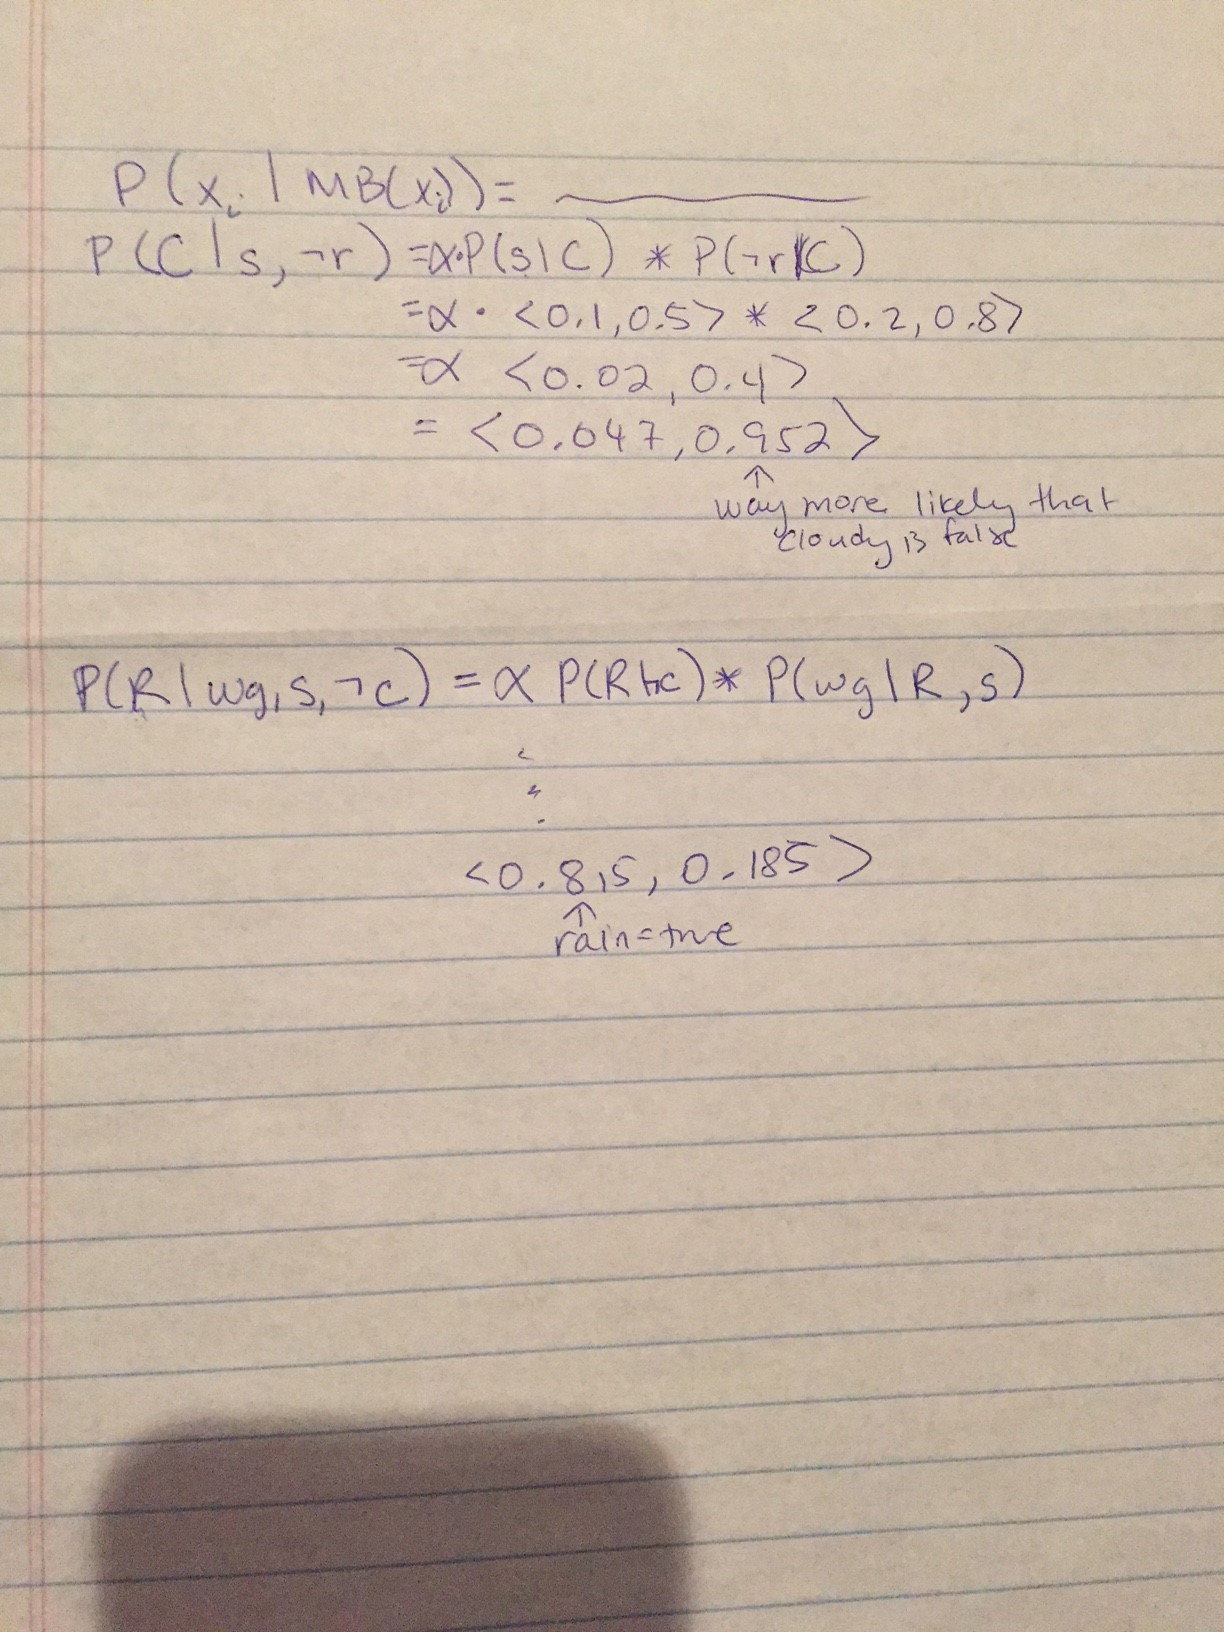 P(xᵢ | MB(xᵢ)) =
P(C | s, ¬r) = α · P(s | C) * P(¬r | C)
= α · <0.1, 0.5> * <0.2, 0.8>
= α <0.02, 0.4>
= <0.047, 0.952>
↑
way more likely that
cloudy is false
P(R | wg, s, ¬c) = α P(R | ¬c) * P(wg | R, s)
<0.815, 0.185>
↑
rain = true